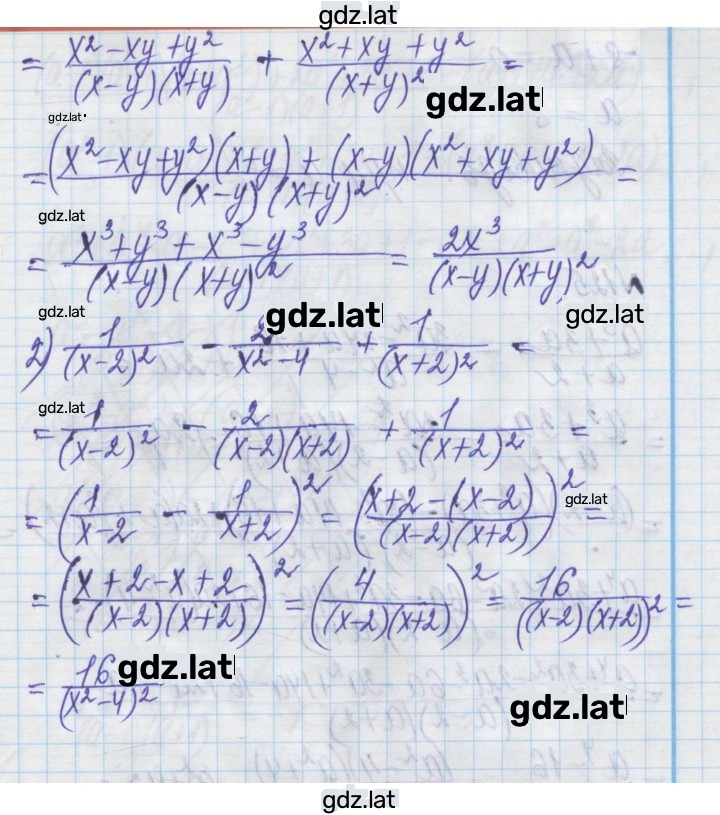 gdz.lat
= (x² - xy + y²)/((x-y)(x+y)) + (x² + xy + y²)/((x+y)²) =
gdz.lat
gdz.lat
= ((x² - xy + y²)(x+y) + (x-y)(x² + xy + y²))/((x-y)(x+y)²) =
gdz.lat
= (x³ + y³ + x³ - y³)/((x-y)(x+y)²) = 2x³/((x-y)(x+y)²)
gdz.lat gdz.lat gdz.lat
2) 1/(x-2)² - 2/(x²-4) + 1/(x+2)² =
gdz.lat
= 1/(x-2)² - 2/((x-2)(x+2)) + 1/(x+2)² =
= (1/(x-2) - 1/(x+2))² = ((x+2-(x-2))/((x-2)(x+2)))² =
gdz.lat
= ((x+2-x+2)/((x-2)(x+2)))² = (4/((x-2)(x+2)))² = 16/((x-2)(x+2))² =
= 16/(x²-4)²
gdz.lat
gdz.lat
gdz.lat